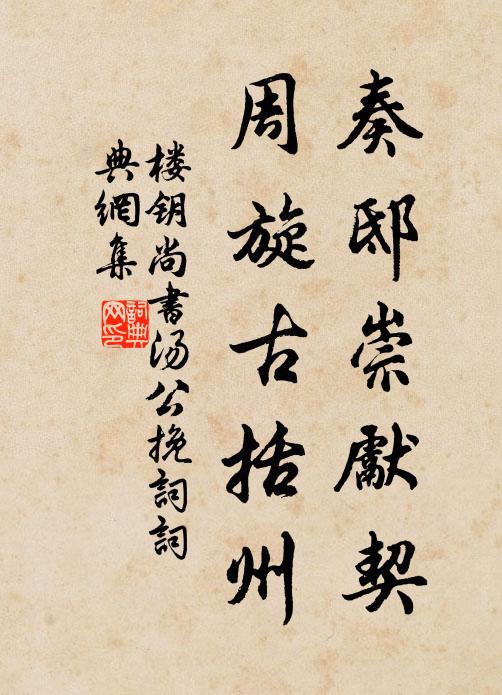 奏邸崇獻契
周旋古括州
楼钥尚書汤公挽詞詞
典網集
詞典网印